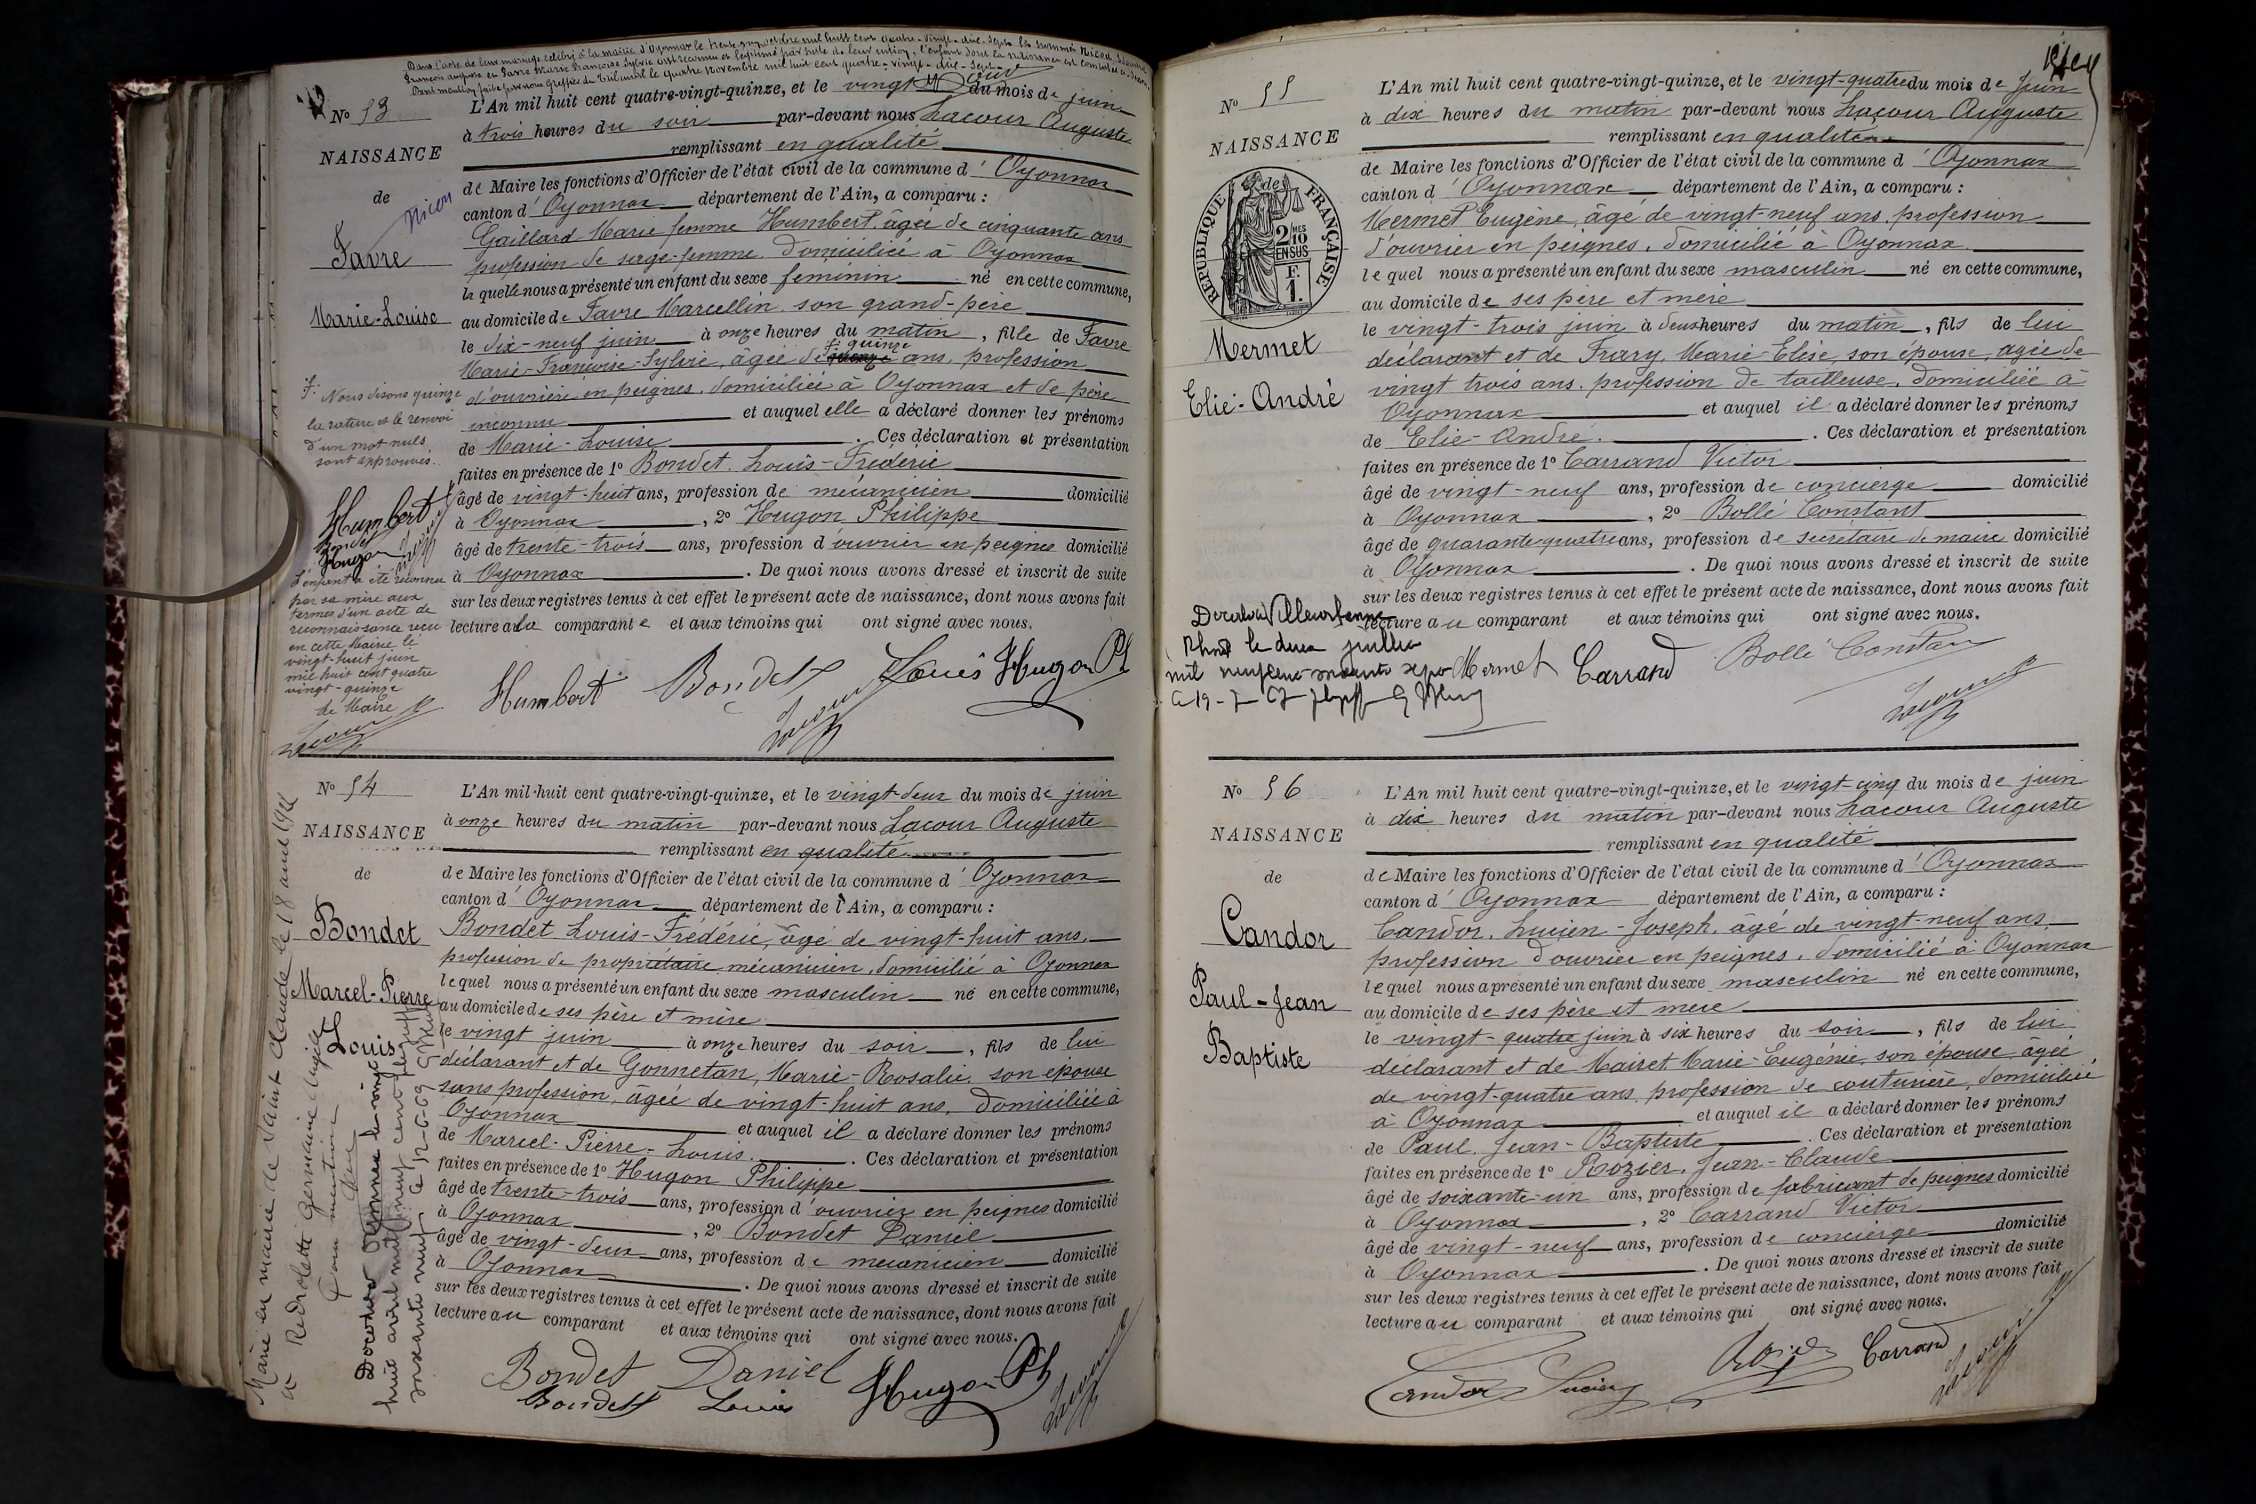 Dans l'acte de leur mariage célébré à la mairie d'Oyonnax le treize octobre mil huit cent quatre-vingt-dix-sept les nommés Nicod
François et Favre Marie Françoise Sylvie ont reconnu et légitimé par suite de leur union, l'enfant dont la naissance est constatée ci-
Dont mention faite par nous Greffier du tribunal le quatre novembre mil huit cent quatre-vingt-dix-sept
No 53
NAISSANCE
de
Nicod
Favre
Marie-Louise
L'An mil huit cent quatre-vingt-quinze, et le vingt du mois de juin
à trois heures du soir par-devant nous Lacour Auguste
remplissant en qualité
de Maire les fonctions d'Officier de l'état civil de la commune d'Oyonnax
canton d'Oyonnax département de l'Ain, a comparu :
Gaillard Marie femme Humbert, âgée de cinquante ans
profession de sage-femme domiciliée à Oyonnax
laquelle nous a présenté un enfant du sexe féminin né en cette commune,
au domicile de Favre Marcellin son grand-père
le dix-neuf juin à onze heures du matin, fille de Favre
quinze
Marie-Françoise-Sylvie, âgée de ans, profession
d'ouvrière en peignes, domiciliée à Oyonnax et de père
inconnu et auquel elle a déclaré donner les prénoms
de Marie-Louise. Ces déclaration et présentation
faites en présence de 1o Bondet Louis-Frédéric
âgé de vingt-huit ans, profession de mécanicien domicilié
à Oyonnax, 2o Hugon Philippe
âgé de trente-trois ans, profession d'ouvrier en peignes domicilié
à Oyonnax. De quoi nous avons dressé et inscrit de suite
sur les deux registres tenus à cet effet le présent acte de naissance, dont nous avons fait
lecture à la comparante et aux témoins qui ont signé avec nous.
Nous disons quinze
la rature et le renvoi
d'un mot nuls
sont approuvés.
Humbert
Bondet
Hugon
L'enfant a été reconnu
par sa mère aux
termes d'un acte de
reconnaissance reçu
en cette Mairie le
vingt-huit juin
mil huit cent quatre
vingt-quinze
Le Maire
Lacour
Humbert Bondet Louis Hugon Ph
Lacour
No 54
NAISSANCE
de
Bondet
Marcel-Pierre
Louis
L'An mil huit cent quatre-vingt-quinze, et le vingt-deux du mois de juin
à onze heures du matin par-devant nous Lacour Auguste
remplissant en qualité
de Maire les fonctions d'Officier de l'état civil de la commune d'Oyonnax
canton d'Oyonnax département de l'Ain, a comparu :
Bondet Louis-Frédéric, âgé de vingt-huit ans,
profession de propriétaire mécanicien, domicilié à Oyonnax
lequel nous a présenté un enfant du sexe masculin né en cette commune,
au domicile de ses père et mère
le vingt juin à onze heures du soir, fils de lui
déclarant et de Gonnetan, Marie-Rosalie son épouse
sans profession, âgée de vingt-huit ans, domiciliée à
Oyonnax et auquel il a déclaré donner les prénoms
de Marcel-Pierre-Louis. Ces déclaration et présentation
faites en présence de 1o Hugon Philippe
âgé de trente-trois ans, profession d'ouvrier en peignes domicilié
à Oyonnax, 2o Bondet Daniel
âgé de vingt-deux ans, profession de mécanicien domicilié
à Oyonnax. De quoi nous avons dressé et inscrit de suite
sur les deux registres tenus à cet effet le présent acte de naissance, dont nous avons fait
lecture au comparant et aux témoins qui ont signé avec nous.
Bondet Daniel Hugon Ph
Bondet Louis
Lacour
Marié en mairie de Saint Claude le 18 avril
Germaine
Dont mention
Décédé à Oyonnax le vingt
huit avril mil neuf cent
soixante neuf Le 12-6-69
No 55
NAISSANCE
de
RÉPUBLIQUE FRANÇAISE
2/10MES
EN SUS
F.
1.
Mermet
Elie-André
L'An mil huit cent quatre-vingt-quinze, et le vingt-quatre du mois de Juin
à dix heures du matin par-devant nous Lacour Auguste
remplissant en qualité
de Maire les fonctions d'Officier de l'état civil de la commune d'Oyonnax
canton d'Oyonnax département de l'Ain, a comparu :
Mermet Eugène, âgé de vingt-neuf ans, profession
d'ouvrier en peignes, domicilié à Oyonnax
lequel nous a présenté un enfant du sexe masculin né en cette commune,
au domicile de ses père et mère
le vingt-trois juin à deux heures du matin, fils de lui
déclarant et de Frary, Marie-Elise, son épouse, âgée de
vingt trois ans, profession de tailleuse, domiciliée à
Oyonnax et auquel il a déclaré donner les prénoms
de Elie-André. Ces déclaration et présentation
faites en présence de 1o Carrand Victor
âgé de vingt-neuf ans, profession de concierge domicilié
à Oyonnax, 2o Bollé Constant
âgé de quarante-quatre ans, profession de secrétaire de mairie domicilié
à Oyonnax. De quoi nous avons dressé et inscrit de suite
sur les deux registres tenus à cet effet le présent acte de naissance, dont nous avons fait
lecture au comparant et aux témoins qui ont signé avec nous.
Décédé à Villeurbanne
Rhône le deux juillet
mil neuf cent soixante sept
Mermet Carrand Bollé Constant
Lacour
No 56
NAISSANCE
de
Candor
Paul-Jean
Baptiste
L'An mil huit cent quatre-vingt-quinze, et le vingt-cinq du mois de juin
à dix heures du matin par-devant nous Lacour Auguste
remplissant en qualité
de Maire les fonctions d'Officier de l'état civil de la commune d'Oyonnax
canton d'Oyonnax département de l'Ain, a comparu :
Candor, Lucien-Joseph, âgé de vingt-neuf ans,
profession d'ouvrier en peignes, domicilié à Oyonnax
lequel nous a présenté un enfant du sexe masculin né en cette commune,
au domicile de ses père et mère
le vingt-quatre juin à six heures du soir, fils de lui
déclarant et de Mairet Marie-Eugénie son épouse âgée
de vingt-quatre ans, profession de couturière, domiciliée
à Oyonnax et auquel il a déclaré donner les prénoms
de Paul Jean-Baptiste. Ces déclaration et présentation
faites en présence de 1o Rozier, Jean-Claude
âgé de soixante-un ans, profession de fabricant de peignes domicilié
à Oyonnax, 2o Carrand Victor
âgé de vingt-neuf ans, profession de concierge domicilié
à Oyonnax. De quoi nous avons dressé et inscrit de suite
sur les deux registres tenus à cet effet le présent acte de naissance, dont nous avons fait
lecture au comparant et aux témoins qui ont signé avec nous.
Candor Lucien Rozier Carrand
Lacour